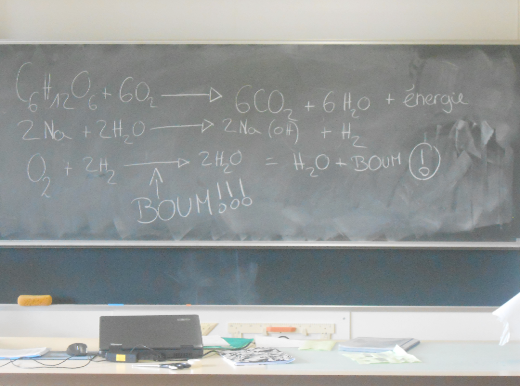 C₆H₁₂O₆ + 6O₂ ⟶ 6CO₂ + 6H₂O + énergie
2Na + 2H₂O ⟶ 2Na(OH) + H₂
O₂ + 2H₂ ⟶ 2H₂O = H₂O + BOUM !
BOUM!!!